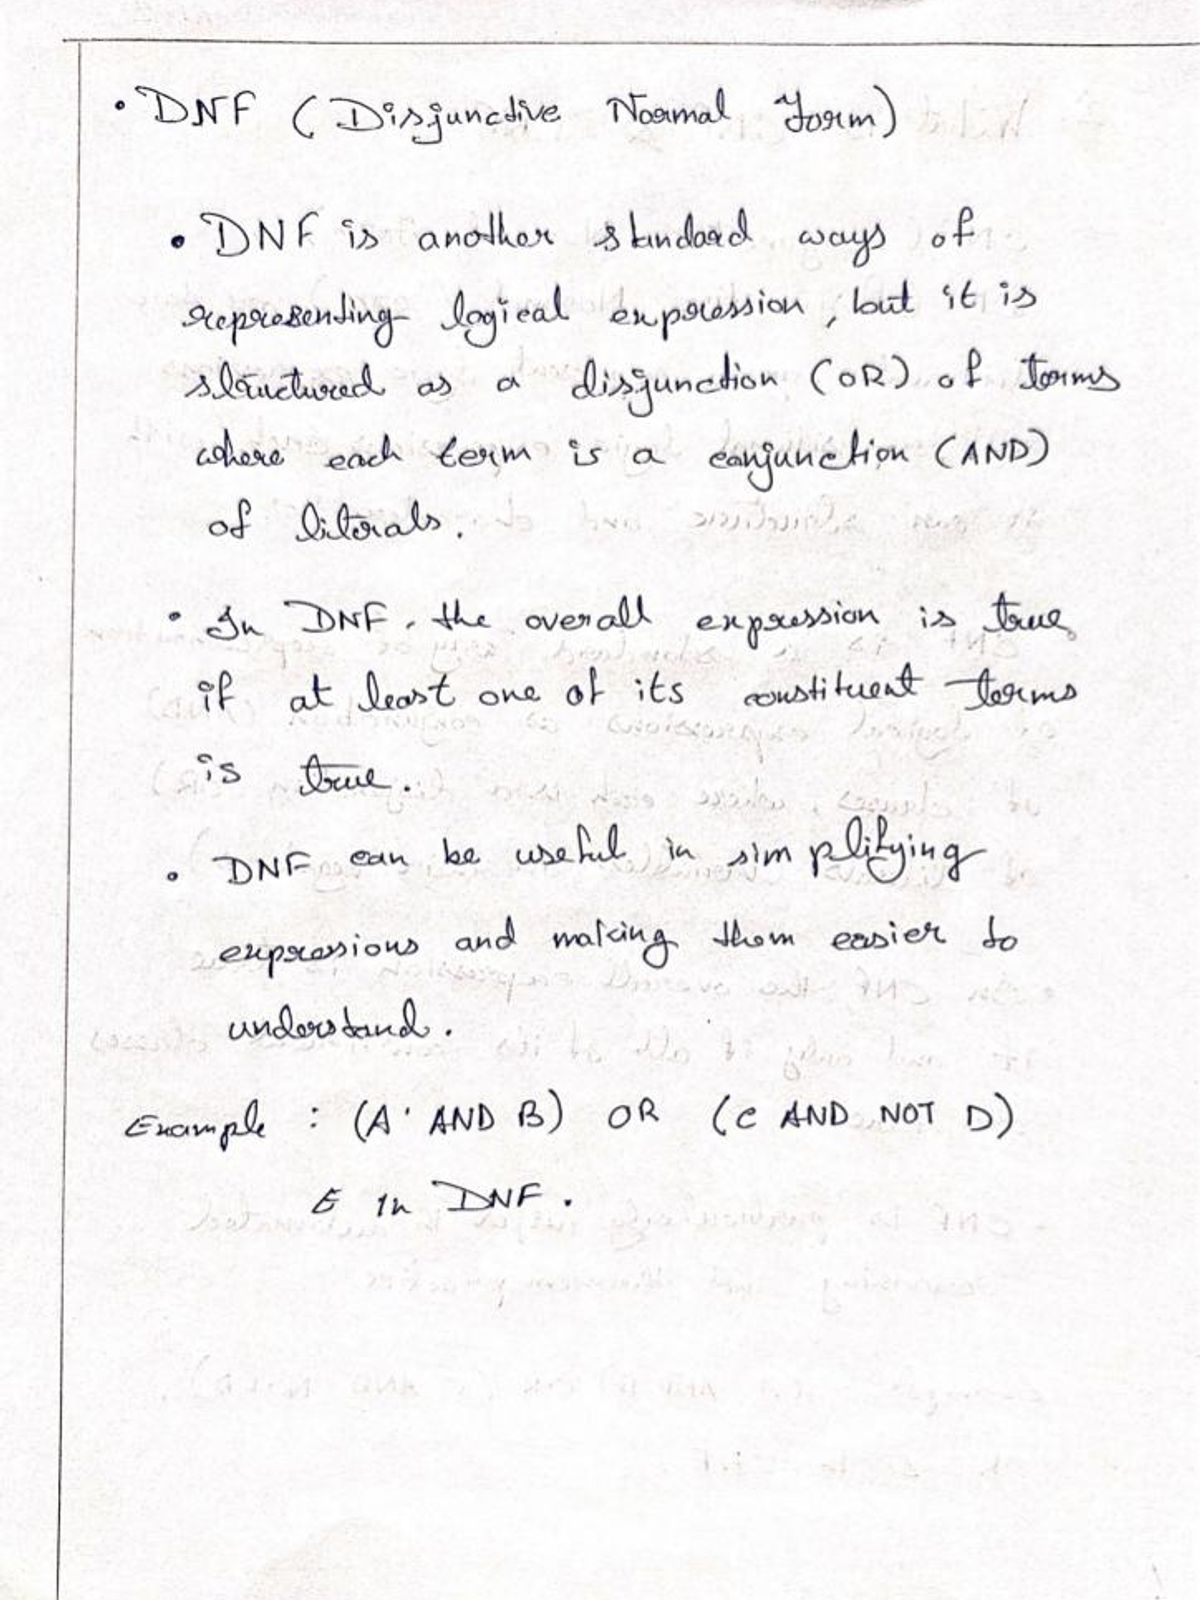 • DNF (Disjunctive Normal Form)
• DNF is another standard ways of
representing logical expression, but it is
structured as a disjunction (OR) of terms
where each term is a conjunction (AND)
of literals.
• In DNF, the overall expression is true
if at least one of its constituent terms
is true.
• DNF can be useful in simplifying
expressions and making them easier to
understand.
Example : (A' AND B) OR (C AND NOT D)
E in DNF.